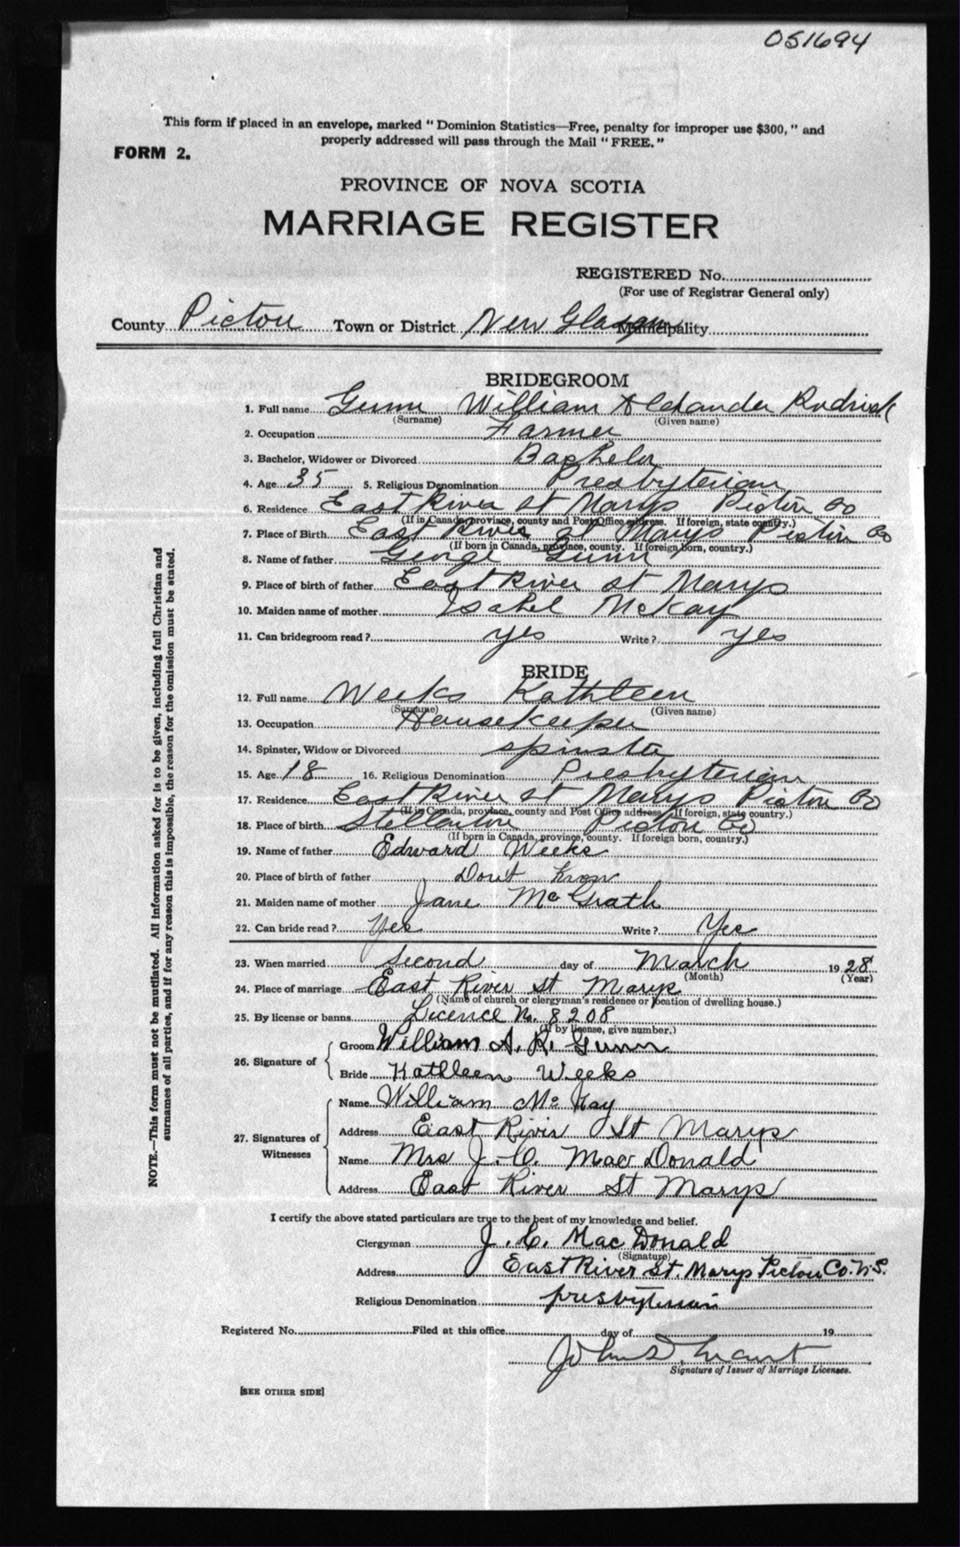 051694
This form if placed in an envelope, marked "Dominion Statistics—Free, penalty for improper use $300," and
properly addressed will pass through the Mail "FREE."
FORM 2.
PROVINCE OF NOVA SCOTIA
MARRIAGE REGISTER
REGISTERED No.
(For use of Registrar General only)
County Pictou Town or District New Glasgow Municipality
BRIDEGROOM
1. Full name Gunn William Alexander Rodrick
(Surname) (Given name)
2. Occupation Farmer
3. Bachelor, Widower or Divorced Bachelor
4. Age 35 5. Religious Denomination Presbyterian
6. Residence East River St Marys Pictou Co
(If in Canada, province, county and Post Office address. If foreign, state country.)
7. Place of Birth East River St Marys Pictou Co
(If born in Canada, province, county. If foreign born, country.)
8. Name of father George Gunn
9. Place of birth of father East River St Marys
10. Maiden name of mother Isabel McKay
11. Can bridegroom read? yes Write? yes
BRIDE
12. Full name Weeks Kathleen
(Surname) (Given name)
13. Occupation Housekeeper
14. Spinster, Widow or Divorced spinster
15. Age 18 16. Religious Denomination Presbyterian
17. Residence East River St Marys Pictou Co
(If in Canada, province, county and Post Office address. If foreign, state country.)
18. Place of birth Stellarton Pictou Co
(If born in Canada, province, county. If foreign born, country.)
19. Name of father Edward Weeks
20. Place of birth of father Dont know
21. Maiden name of mother Jane McGrath
22. Can bride read? Yes Write? Yes
23. When married Second day of March 1928
(Month) (Year)
24. Place of marriage East River St Marys
(Name of church or clergyman's residence or location of dwelling house.)
25. By license or banns Licence No. 8208
(If by license, give number.)
26. Signature of Groom William A. R. Gunn
Bride Kathleen Weeks
27. Signatures of Witnesses Name William McKay
Address East River St Marys
Name Mrs J. C. MacDonald
Address East River St Marys
I certify the above stated particulars are true to the best of my knowledge and belief.
Clergyman J. C. MacDonald
(Signature)
Address East River St. Marys Pictou Co. N.S.
Religious Denomination presbyterian
Registered No. Filed at this office day of 19
John
Signature of Issuer of Marriage Licenses.
[SEE OTHER SIDE]
NOTE.—This form must not be mutilated. All information asked for is to be given, including full Christian and
surnames of all parties, and if for any reason this is impossible, the reason for the omission must be stated.